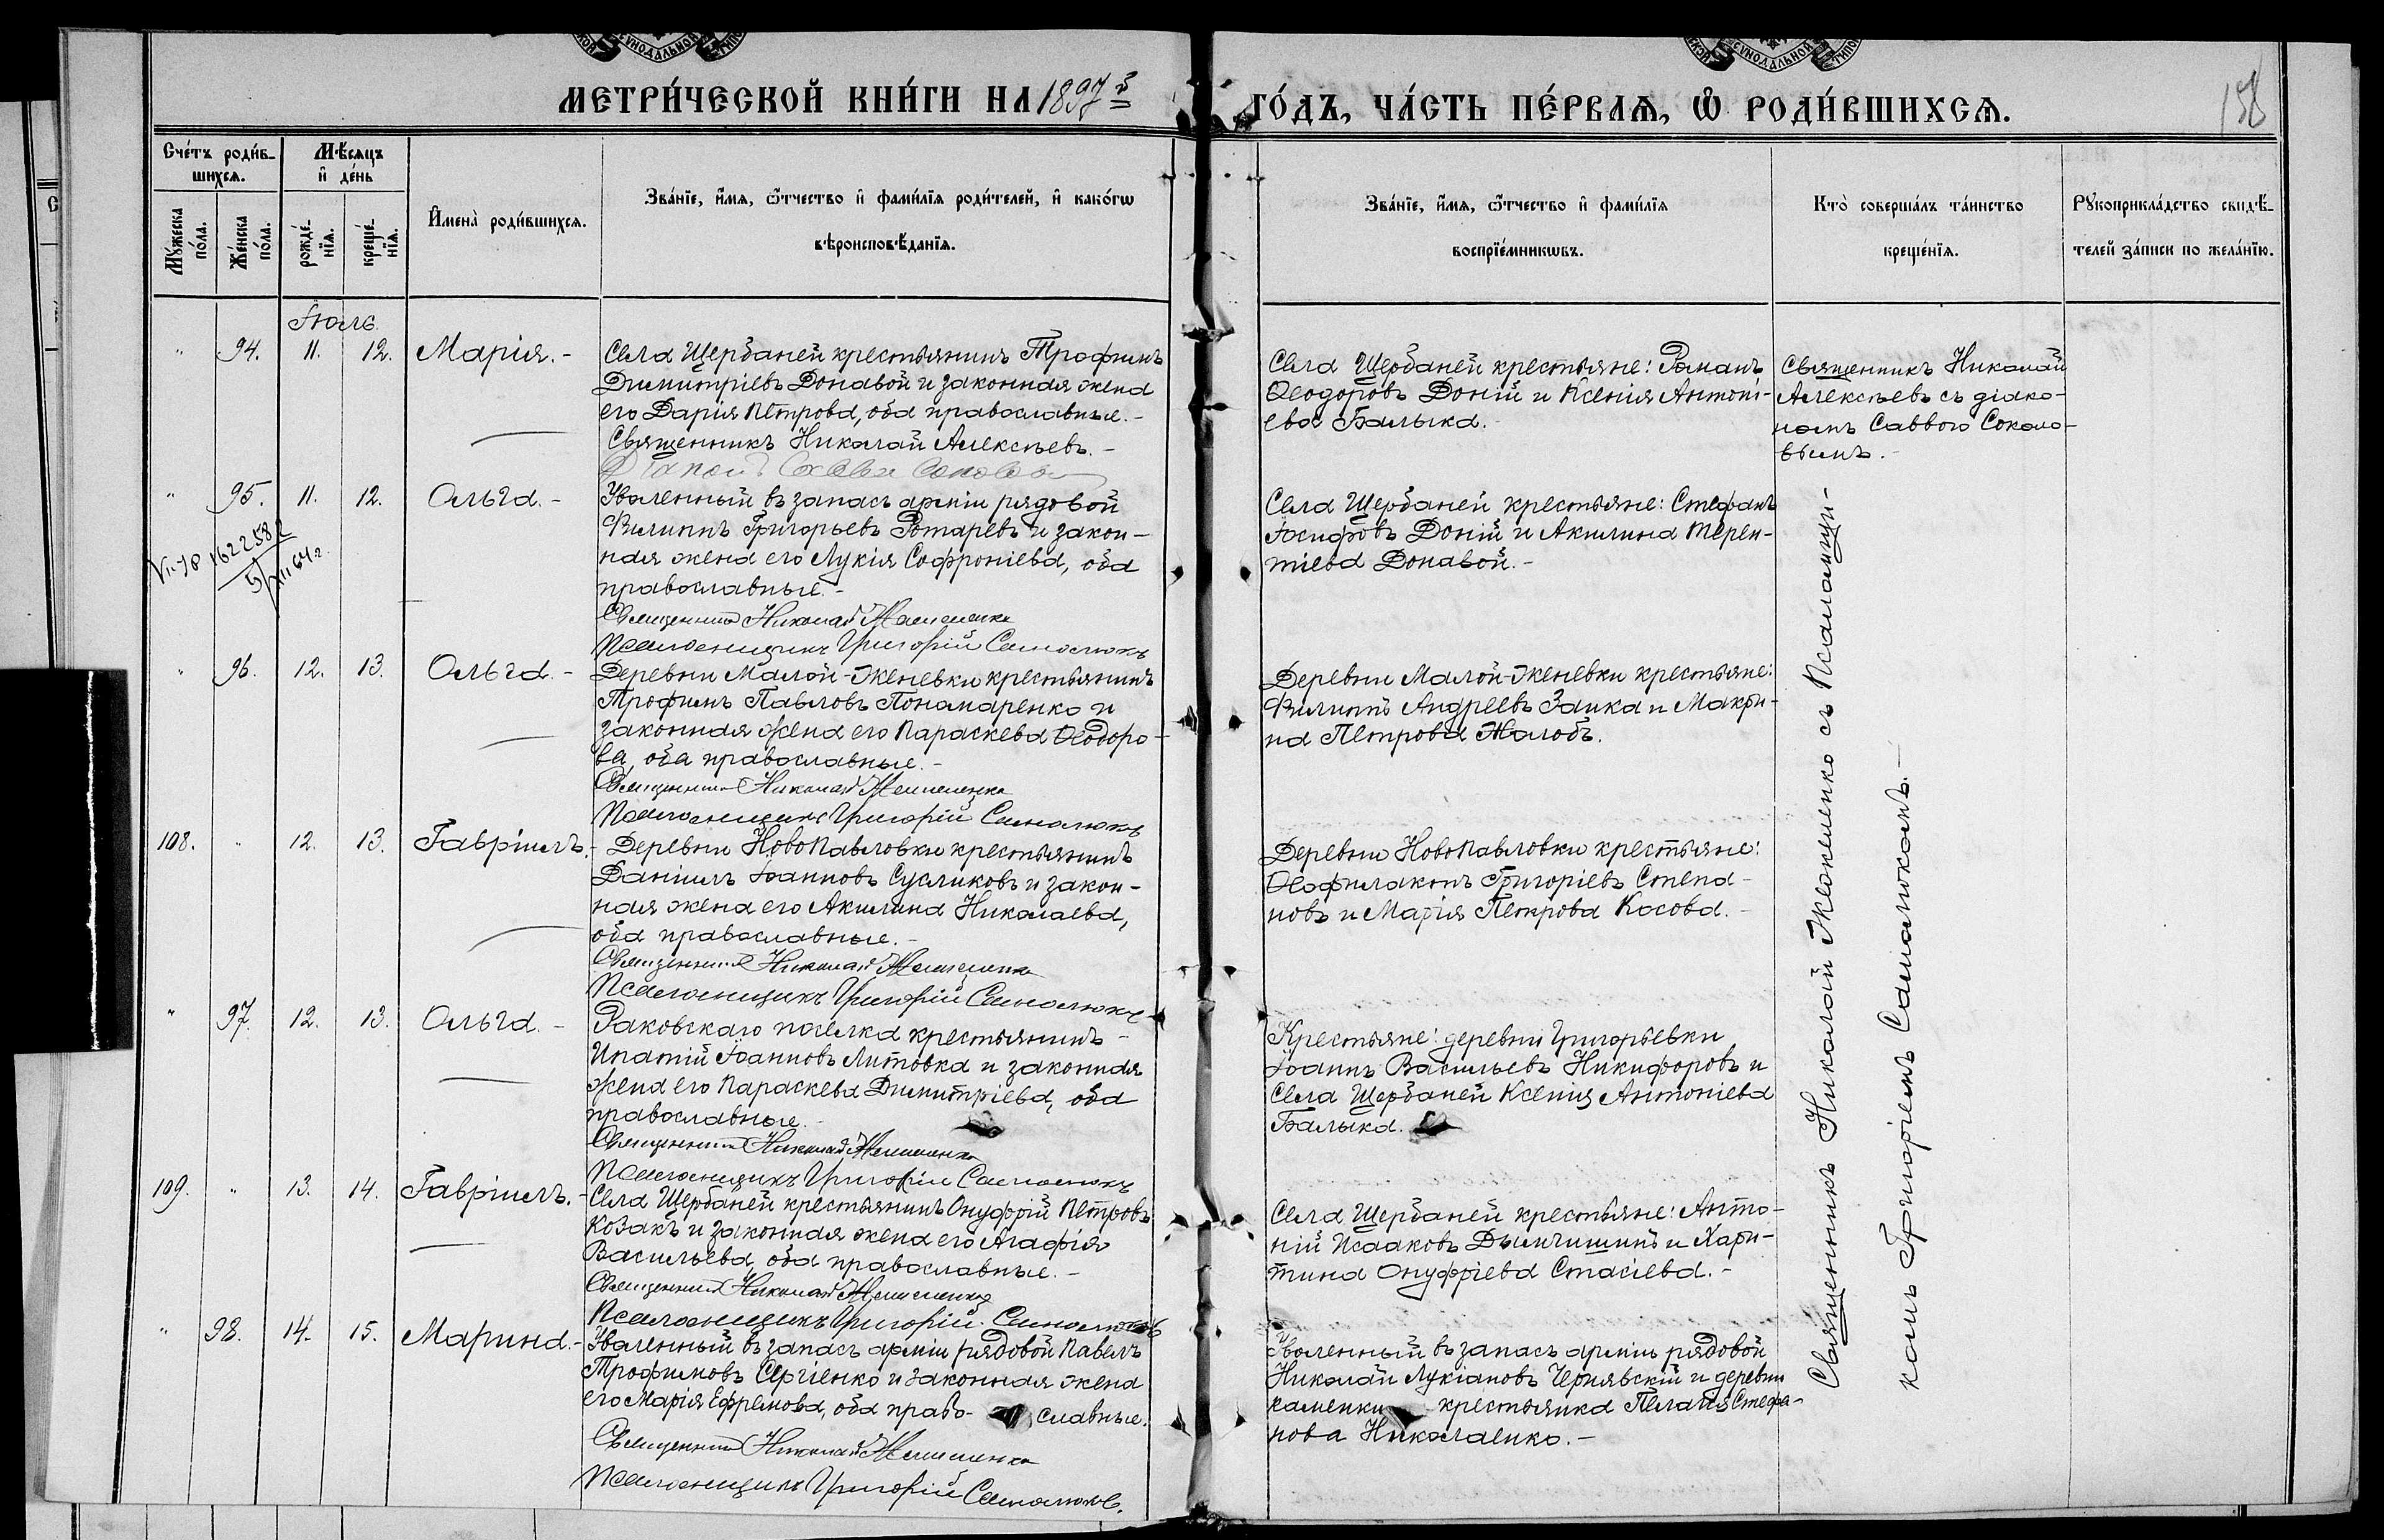 МЕТРИ́ЧЕСКОЙ КНИ́ГИ НА 1897й ГО́ДЪ, ЧА́СТЬ ПЕ́РВАѦ, Ѡ РОДИ́ВШИХСѦ.
158
Сче́тъ роди́в-
шихсѧ.
Мѣ́сяцъ
и҆ де́нь
Мꙋ́жеска
по́ла.
Же́нска
по́ла.
рожде́-
нїѧ.
креще́-
нїѧ.
И҆мена̀ роди́вшихсѧ.
Зва́нїе, и҆́мѧ, ѻ҆́тчество и҆ фами́лїѧ роди́телей, и҆ како́гѡ
вѣроисповѣ́данїѧ.
Зва́нїе, и҆́мѧ, ѻ҆́тчество и҆ фами́лїѧ
воспрїе́мникѡвъ.
Кто̀ соверша́лъ та́инство
креще́нїѧ.
Рꙋкоприкла́дство свидѣ́-
телей за́писи по жела́нїю.
Іюль.
" 94. 11. 12. Марія.-
Села Щербаней крестьянинъ Трофимъ
Димитріевъ Донавой и законная жена
его Дарія Петрова, оба православные.-
Священникъ Николай Алексѣевъ.-
Села Щербаней крестьяне: Романъ
Ѳеодоровъ Доній и Ксенія Антоні-
ева Балыка.
Священникъ Николай
Алексѣевъ съ діако-
номъ Саввою Соколо-
вымъ.-
" 95. 11. 12. Ольга.-
Уволенный въ запасъ арміи рядовой
Филиппъ Григорьевъ Ротаревъ и закон-
ная жена его Лукія Софроніева, оба
православные.-
Священникъ Николай
Псаломщикъ Григорій Самолюкъ
Села Щербаней крестьяне: Стефанъ
Іосифовъ Доній и Акилина Терен-
тіева Донавой.-
" 96. 12. 13. Ольга.-
Деревни Малой-Женевки крестьянинъ
Трофимъ Павловъ Пономаренко и
законная жена его Параскева Ѳеодоро-
ва, оба православные.-
Священникъ Николай
Псаломщикъ Григорій Самолюкъ
Деревни Малой-Женевки крестьяне:
Филиппъ Андреевъ Заика и Макри-
на Петрова Жалобъ.
108. " 12. 13. Гавріилъ.-
Деревни НовоПавловки крестьянинъ
Даніилъ Іоанновъ Сусликовъ и закон-
ная жена его Акилина Николаева,
оба православные.-
Священникъ Николай
Псаломщикъ Григорій Самолюкъ
Деревни НовоПавловки крестьяне:
Ѳеофилактъ Григоріевъ Степа-
новъ и Марія Петрова Косова.-
" 97. 12. 13. Ольга.-
Раковскаго поселка крестьянинъ-
Ипатій Іоанновъ Литовка и законная
жена его Параскева Димитріева, оба
православные.-
Священникъ Николай
Псаломщикъ Григорій Самолюкъ
Крестьяне: деревни Григорьевки
Іоаннъ Васильевъ Никифоровъ и
села Щербаней Ксенія Антоніева
Балыка.
109. " 13. 14. Гавріилъ.-
Села Щербаней крестьянинъ Онуфрій Петровъ
Козакъ и законная жена его Агафія
Васильева, оба православные.-
Священникъ Николай
Псаломщикъ Григорій Самолюкъ
Села Щербаней крестьяне: Анто-
ній Исааковъ Дымчишинъ и Хари-
тина Онуфріева Стасіева.-
" 98. 14. 15. Марина.-
Уволенный въ запасъ арміи рядовой Павелъ
Трофимовъ Сергіенко и законная жена
его Марія Ефремова, оба право-славные.
Священникъ Николай
Псаломщикъ Григорій Самолюкъ.
Уволенный въ запасъ арміи рядовой
Николай Лукіановъ Чернявскій и деревни
Каменки крестьянка Пелагія Стефа-
нова Николаенко.-
Священникъ Николай съ Псаломщи-
комъ Григоріемъ Самолюкомъ.-